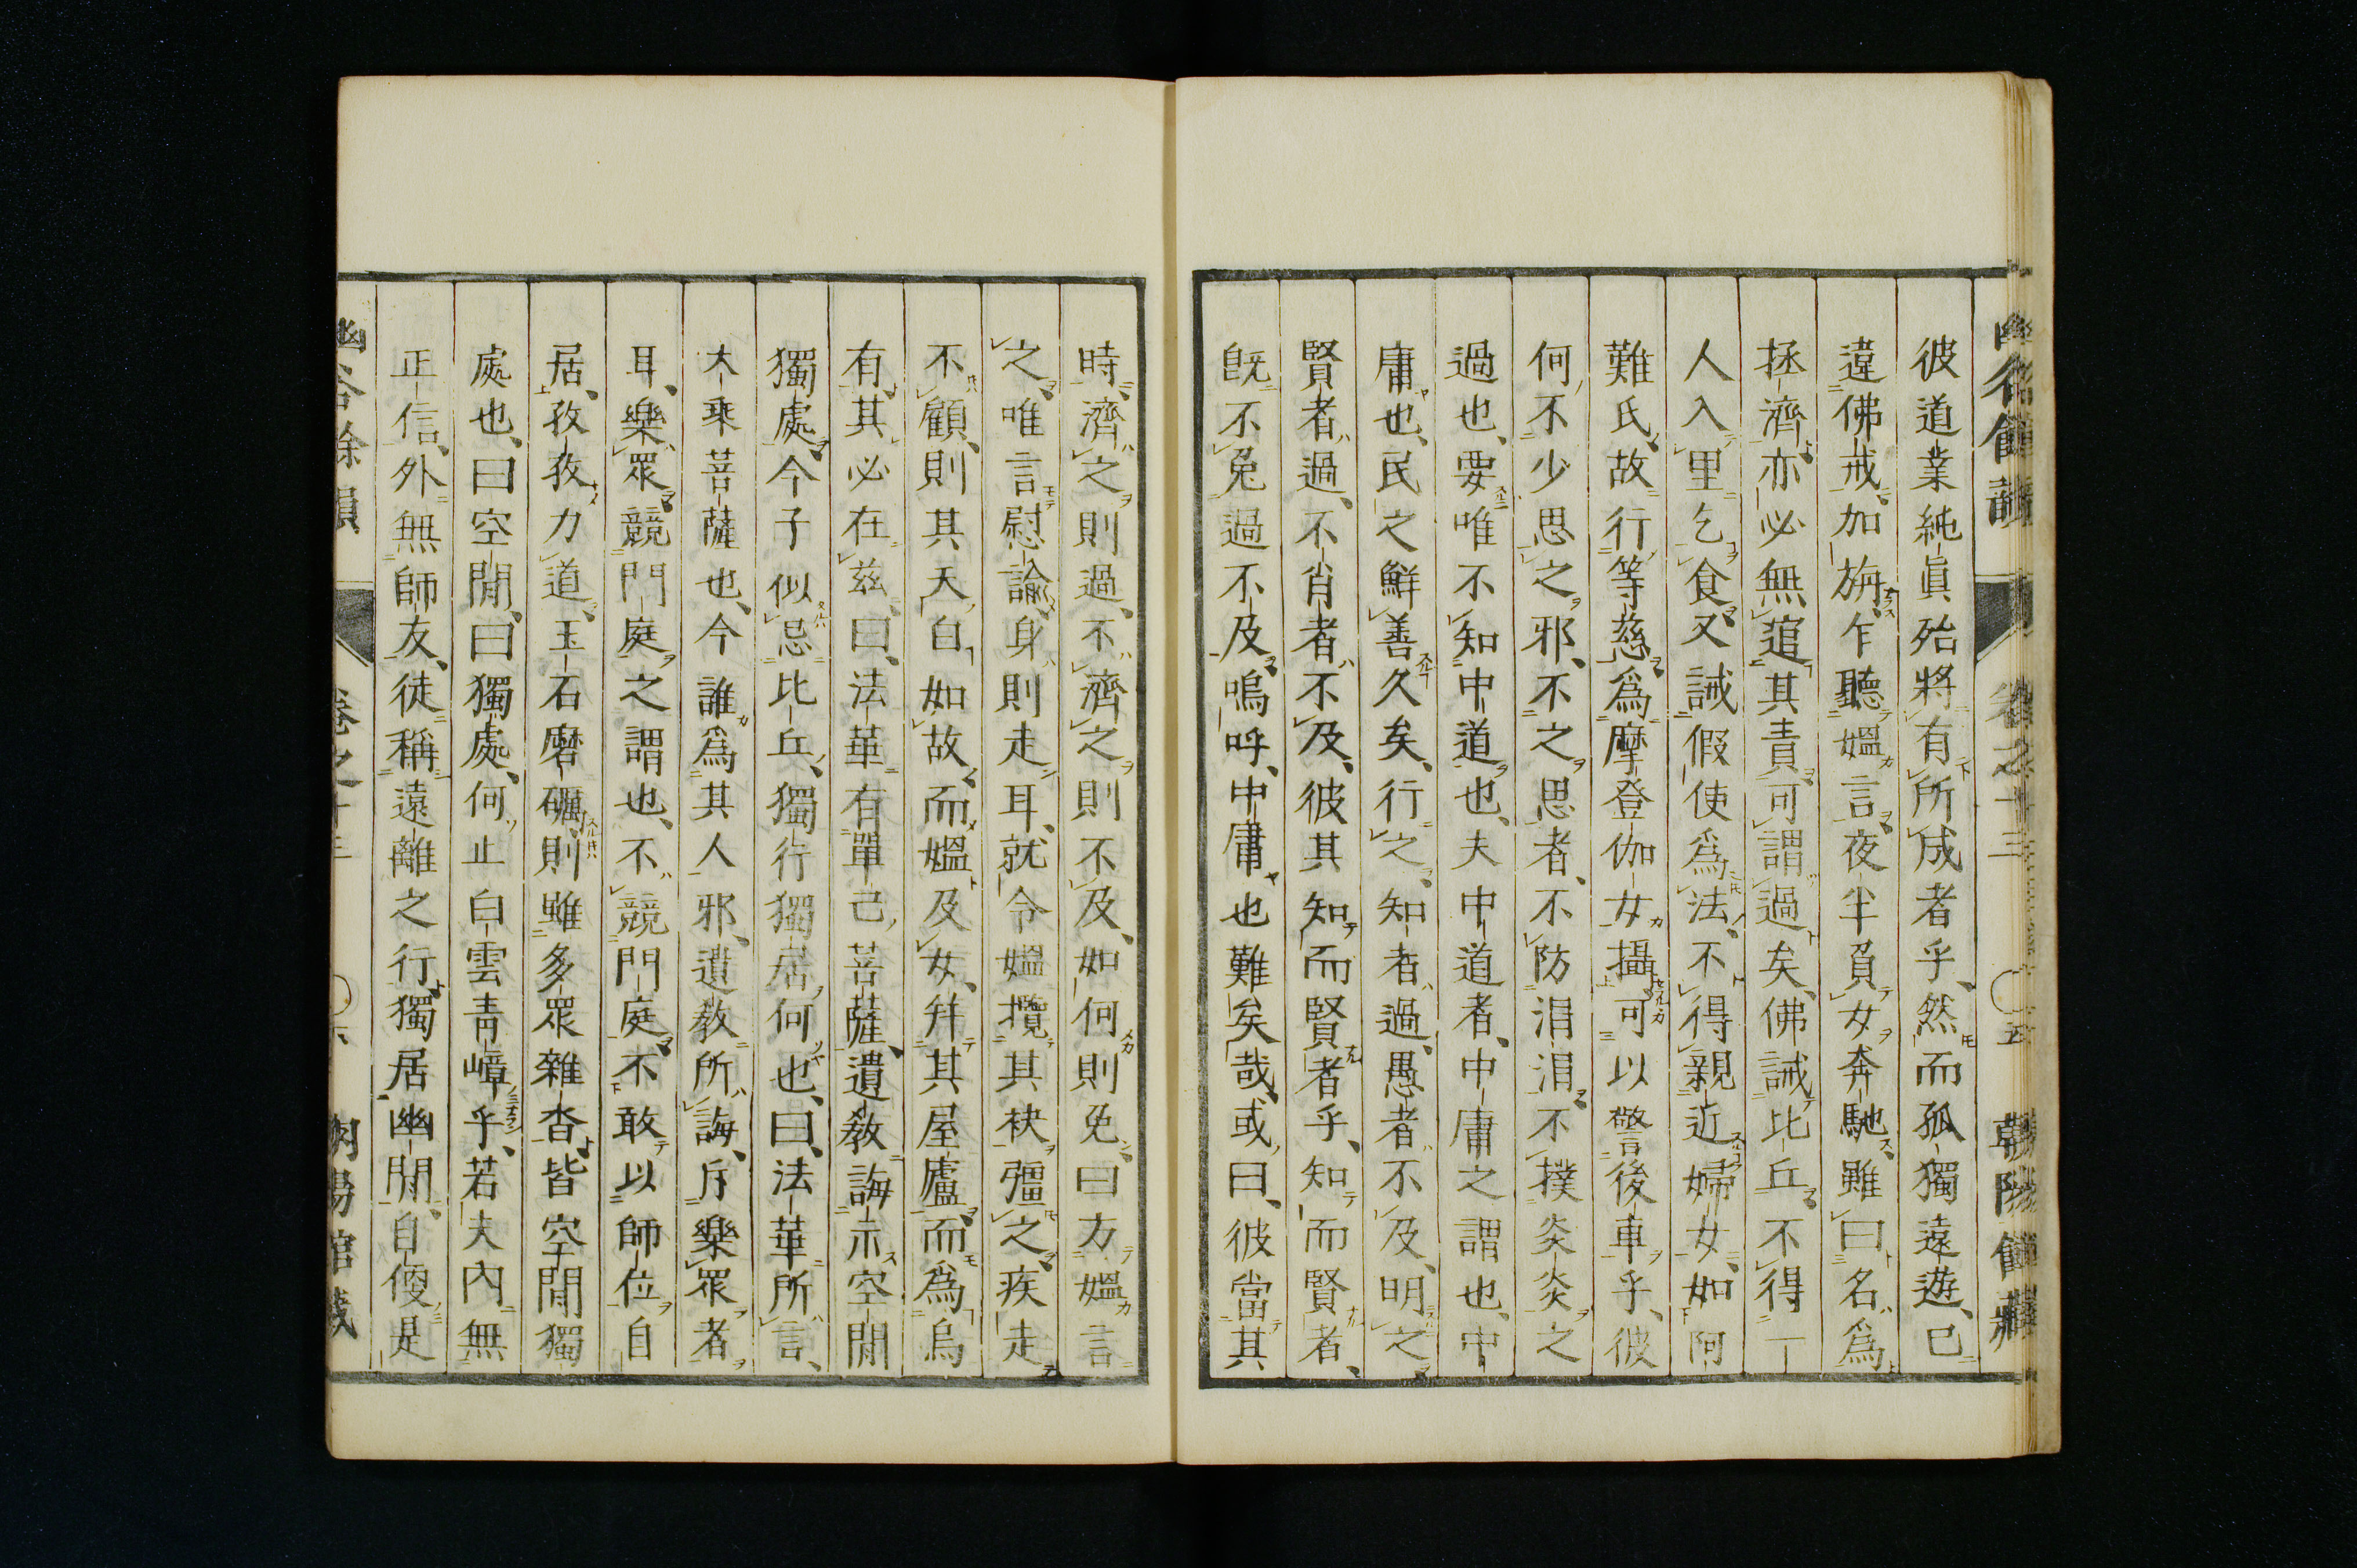 彼道業純眞殆將有所成者乎、然而孤獨遠遊、已
違佛戒、加旃、乍聽媼言、夜半負女奔馳、雖曰名爲
拯濟、亦必無逭其責、可謂過矣、佛誡比丘、不得一
人入里乞食、又誡假使爲法、不得親近婦女、如阿
難氏、故行等慈、爲摩登伽女攝、可以警後車乎、彼
何不少思之邪、不之思者、不防涓涓、不撲炎炎之
過也、要唯不知中道也、夫中道者、中庸之謂也、中
庸也、民之鮮善久矣、行之、知者過、愚者不及、明之
賢者過、不肖者不及、彼其知而賢者乎、知而賢者、
既不免過不及、嗚呼、中庸也難矣哉、或曰、彼當其
時、濟之則過、不濟之則不及、如何則免、曰方媼言
之、唯言慰諭、身則走耳、就令媼攬其袂彊之、疾走
不顧、則其天自如故、而媼及女、幷其屋廬、而爲烏
有、其必在茲、曰、法華有單己菩薩、遺敎誨示空閒
獨處、今子似忌比丘獨行獨居、何也、曰、法華所言、
大乘菩薩也、今誰爲其人邪、遺敎所誨、斥樂眾者
耳、樂眾競門庭之謂也、不競門庭、不敢以師位自
居、孜孜力道、玉石磨礪、則雖多眾雜沓、皆空閒獨
處也、曰空閒、曰獨處、何止白雲青嶂乎、若夫內無
正信、外無師友、徒稱遠離之行、獨居幽閒、自便是
幽谷餘韻 卷之十三 〇六 朝陽館藏